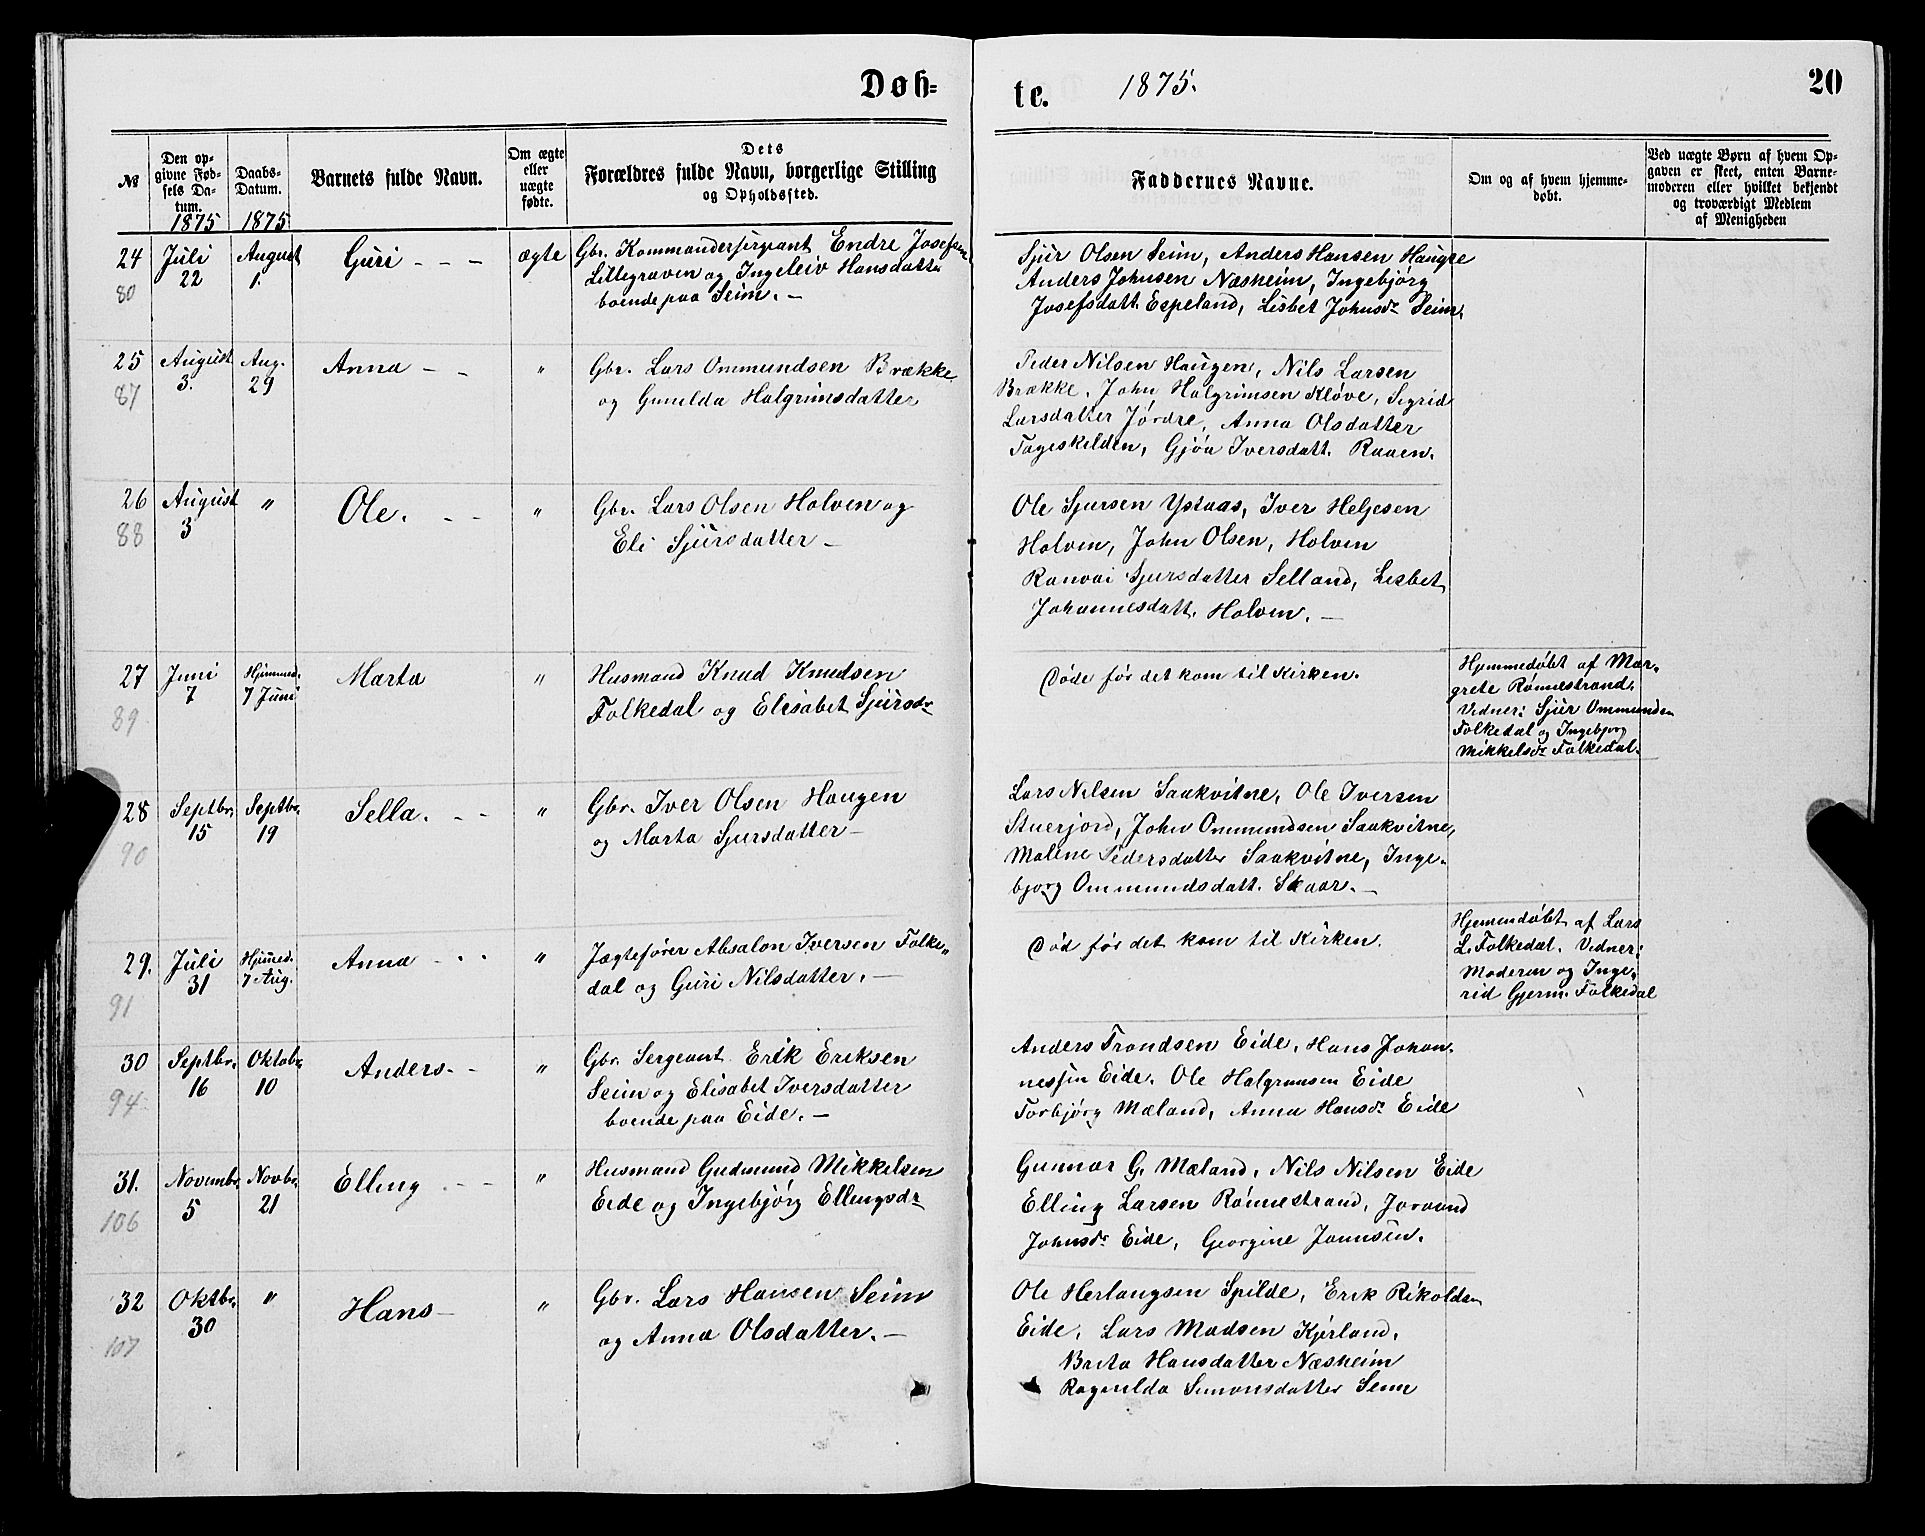 Døb=
te. 1875. 20
№
Den op-
givne Fød-
sels Da-
tum.
1875
Daabs-
Datum.
1875
Barnets fulde Navn.
Om ægte
eller
uægte
fødte.
Dets
Forældres fulde Navn, borgerlige Stilling
og Opholdssted.
Faddernes Navne.
Om og af hvem hjemme-
døbt.
Ved uægte Børn af hvem Op-
gaven er skeet, enten Barne-
moderen eller hvilket bekjendt
og troværdigt Medlem
af Menigheden
24
80
Juli
22
August
1.
Guri - - -
ægte
Gbr. Kommandersergeant Endre Josefsen
Littlegraven og Ingeleiv Hansdatter
boende paa Seim. -
Sjur Olsen Seim, Anders Hansen Haugse
Anders Johnsen Næsheim, Ingebjørg
Josefsdatt. Espeland, Lisbet Johnsdr Seim.
25
87
August
3.
Aug.
29
Anna - -
"
Gbr. Lars Ommundsen Brække
og Gunilda Halgrimsdatter
Peder Nilsen Haugen, Nils Larsen
Brække. John Halgrimsen Kløve, Sigrid
Larsdatter Jørdre, Anna Olsdatter
Fageskilden, Gjøa Iversdatt. Raaen.
26
88
August
3
"
Ole. - -
"
Gbr. Lars Olsen Holven og
Eli Sjursdatter -
Ole Sjursen Ystaas, Iver Heljesen
Holven, John Olsen, Holven
Ranvai Sjursdatter Selland, Lisbet
Johannesdatt. Holven. -
27
89
Juni
7
Hjemmed.
7 Juni
Marta
"
Husmand Knud Knudsen
Folkedal og Elisabet Sjursdr
Døde før det kom til Kirken.
Hjemmedøbt af Mar-
grete Rønnestrand.
Vidner: Sjur Ommundsn
Folkedal og Ingebjorg
Mikkelsdr Folkedal.
28
90
Septbr.
15
Septbr.
19
Sella. - -
"
Gbr. Iver Olsen Haugen
og Marta Sjursdatter -
Lars Nilsen Saakvitne, Ole Iversen
Stuerjord, John Ommundsen Saakvitne,
Malene Pedersdatter Saakvitne, Inge-
bjorg Ommundsdatt. Skaar. -
29.
91
Juli
31
Hjemed.
7 Aug.
Anna - - -
"
Jægtefører Absalon Iversen Folke-
dal og Guri Nilsdatter. -
Død før det kom til Kirken.
Hjemendøbt af Lars
L. Folkedal. Vidner:
Moderen og Inge-
rid Gjerm. Folkedal
30
94
Septbr.
16
Oktobr.
10
Anders. -
"
Gbr. Sergeant Erik Eriksen
Seim og Elisabet Iversdatter
boende paa Eide. -
Anders Trondsen Eide, Hans Johan-
nessen Eide. Ole Halgrimsen Eide
Torbjørg Mæland, Anna Hansdr Eide
31.
106
Novembr.
5
Novbr.
21
Elling - - -
"
Husmand Gudmund Mikkelsen
Eide og Ingebjørg Ellingsdr
Gunnar G. Mæland, Nils Nilsen Eide
Elling Larsen Rønnestrand, Jorand
Johnsdr Eide, Georgine Jonnsen.
32
107
Oktbr.
30
"
Hans -
"
Gbr. Lars Hansen Seim
og Anna Olsdatter. -
Ole Herlaugsen Spilde, Erik Rikoldsn
Eide, Lars Madsen Kjerland,
Brita Hansdatter Næsheim
Ragnilda Simonsdatter Seim